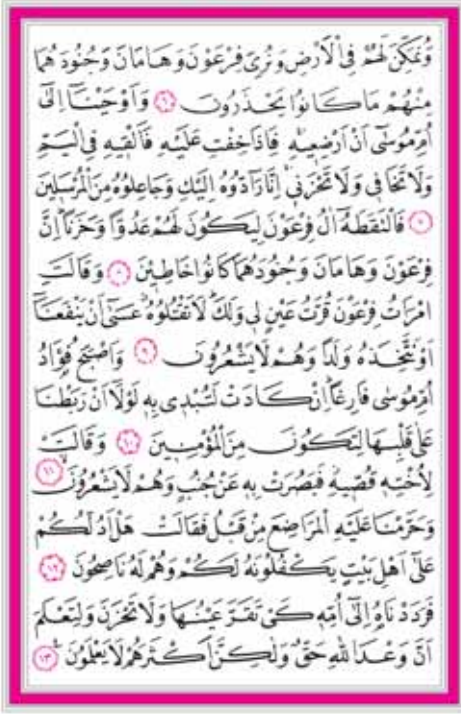 وَنُمَكِّنَ لَهُمْ فِى الْاَرْضِ وَنُرِىَ فِرْعَوْنَ وَهَامَانَ وَجُنُودَهُمَا
مِنْهُمْ مَا كَانُوا يَحْذَرُونَ ﴿٦﴾ وَاَوْحَيْنَٓا اِلٰٓى
اُمِّ مُوسٰٓى اَنْ اَرْضِعِيهِۚ فَاِذَا خِفْتِ عَلَيْهِ فَاَلْقِيهِ فِى الْيَمِّ
وَلَا تَخَافِى وَلَا تَحْزَنِىۚ اِنَّا رَٓادُّوهُ اِلَيْكِ وَجَاعِلُوهُ مِنَ الْمُرْسَلِينَ
﴿٧﴾ فَالْتَقَطَهُٓ اٰلُ فِرْعَوْنَ لِيَكُونَ لَهُمْ عَدُوًّا وَحَزَنًاۜ اِنَّ
فِرْعَوْنَ وَهَامَانَ وَجُنُودَهُمَا كَانُوا خَاطِـِٔينَ ﴿٨﴾ وَقَالَتِ
امْرَاَتُ فِرْعَوْنَ قُرَّتُ عَيْنٍ لِى وَلَكَۜ لَا تَقْتُلُوهُۗ عَسٰٓى اَنْ يَنْفَعَنَٓا
اَوْ نَتَّخِذَهُ وَلَدًا وَهُمْ لَا يَشْعُرُونَ ﴿٩﴾ وَاَصْبَحَ فُؤٰادُ
اُمِّ مُوسٰى فَارِغًاۜ اِنْ كَادَتْ لَتُبْدِى بِهِ لَوْلَٓا اَنْ رَبَطْنَا
عَلٰى قَلْبِهَا لِتَكُونَ مِنَ الْمُؤْمِنِينَ ﴿١٠﴾ وَقَالَتْ
لِاُخْتِهِ قُصِّيهِۘ فَبَصُرَتْ بِهِ عَنْ جُنُبٍ وَهُمْ لَا يَشْعُرُونَۙ ﴿١١﴾
وَحَرَّمْنَا عَلَيْهِ الْمَرَاضِعَ مِنْ قَبْلُ فَقَالَتْ هَلْ اَدُلُّكُمْ
عَلٰٓى اَهْلِ بَيْتٍ يَكْفُلُونَهُ لَكُمْ وَهُمْ لَهُ نَاصِحُونَ ﴿١٢﴾
فَرَدَدْنَاهُ اِلٰٓى اُمِّهِ كَىْ تَقَرَّ عَيْنُهَا وَلَا تَحْزَنَ وَلِتَعْلَمَ
اَنَّ وَعْدَ اللّٰهِ حَقٌّ وَلٰكِنَّ اَكْثَرَهُمْ لَا يَعْلَمُونَ ﴿١٣﴾